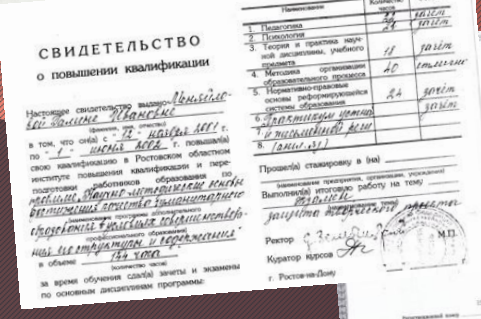 СВИДЕТЕЛЬСТВО
о повышении квалификации
Настоящее свидетельство выдано Меняйло-
вой Галине Ивановне
(фамилия, имя, отчество)
в том, что он(а) с "12" ноября 2001 г.
по "1" июня 2002 г. повышал(а)
свою квалификацию в Ростовском областном
институте повышения квалификации и пере-
подготовки работников образования по
Научно-методические основы
гуманитарного
образования в условиях
профессионального образования)
его структуры и содержания"
в объеме 144 часа
(количество часов)
за время обучения сдал(а) зачеты и экзамены
по основным дисциплинам программы:
Наименование
часов
1. Педагогика зачёт
2. Психология 24 зачёт
3. Теория и практика науч-
ной дисциплины, учебного
предмета 18 зачёт
4. Методика организации
образовательного процесса 40 отлично
5. Нормативно-правовые
основы реформирующейся
системы образования 24 зачёт
6. Практикум устной зачёт
7. и письменной речи
8. (англ. яз)
Прошел(а) стажировку в (на)
(наименование предприятия, организации, учреждения)
Выполнил(а) итоговую работу на тему
защита творческого проекта
Ректор
М.П.
Куратор курсов
г. Ростов-на-Дону